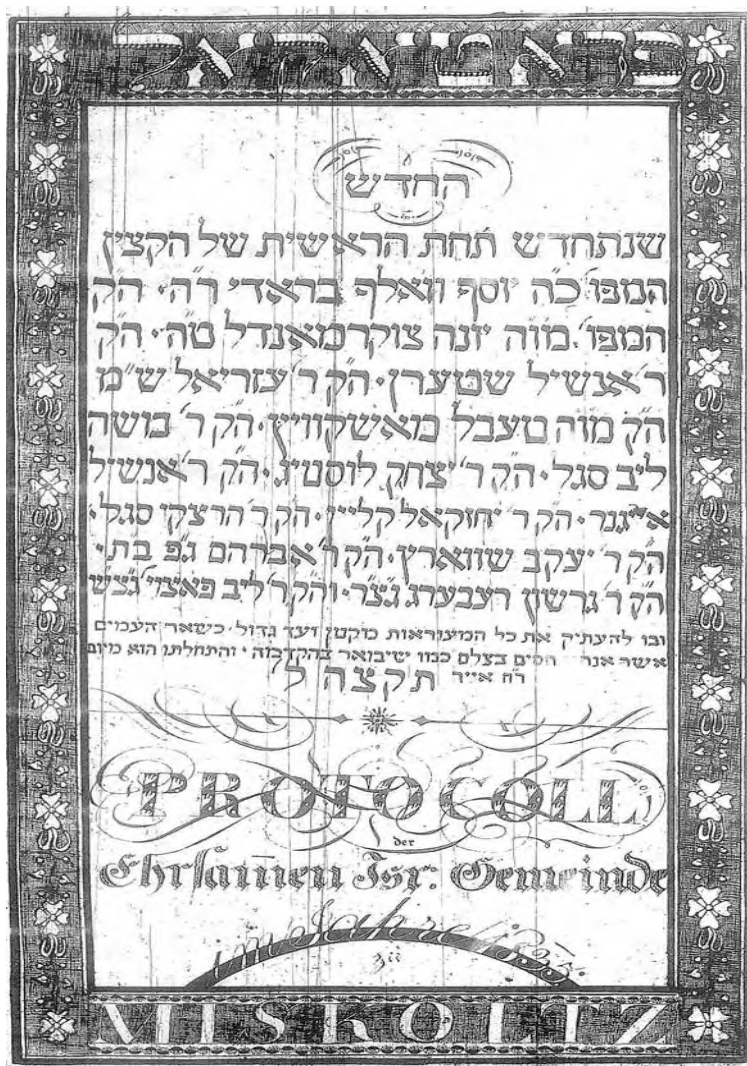 פראטאקאל
החדש
שנתחדש תחת הראשית של הקצין
המפו' כ"ה יוסף וואלף בראדי ר"ה · הק'
המפו' מו"ה יונה צוקרמאנדל ט"ה · הק'
ר' אנשיל שטערן · הק' ר' עזריאל ש"מ
הק' מו"ה טעבל מאשקוויץ · הק' ר' משה
ליב סג"ל · הק' ר' יצחק לוסטיג · הק' ר' אנשיל
הק' ר' יחזקאל קליין · הק' ר' הרצקו סג"ל ·
הק' ר' יעקב שווארץ · הק' ר' אברהם
הק' ר' גרשון רעבערג · והק' ר' ליב
ובו להעתיק את כל המעוראות מקטן ועד גדול · כשאר העמים
אשר בצלם כמו שיבואר בהקדמה · והתחלתו הוא מיום
ר"ח אייר תקצ"ה ל
PROTOCOLL
der
Ehrsamen Isr: Gemeinde
im Jahre 1835
zu
MISKOLTZ